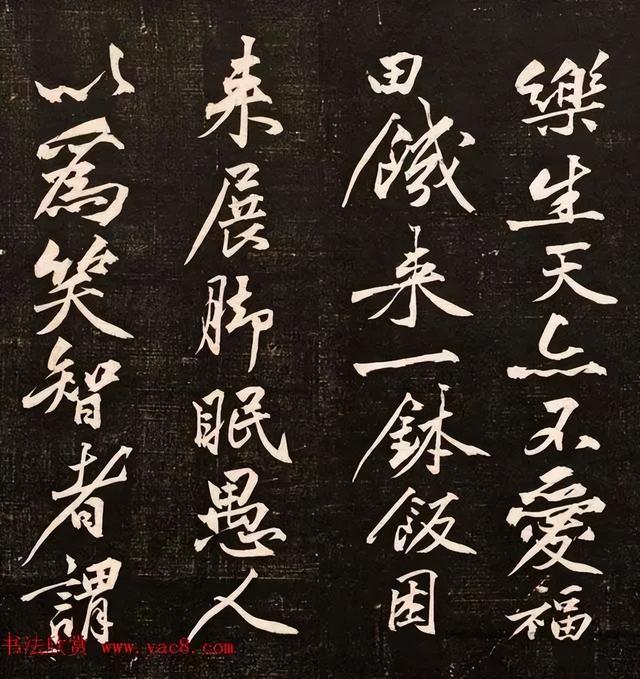 樂生天亦不愛福
田饑来一鉢飯困
来展脚眠愚人
以為笑智者謂
书法欣赏 www.yac8.com